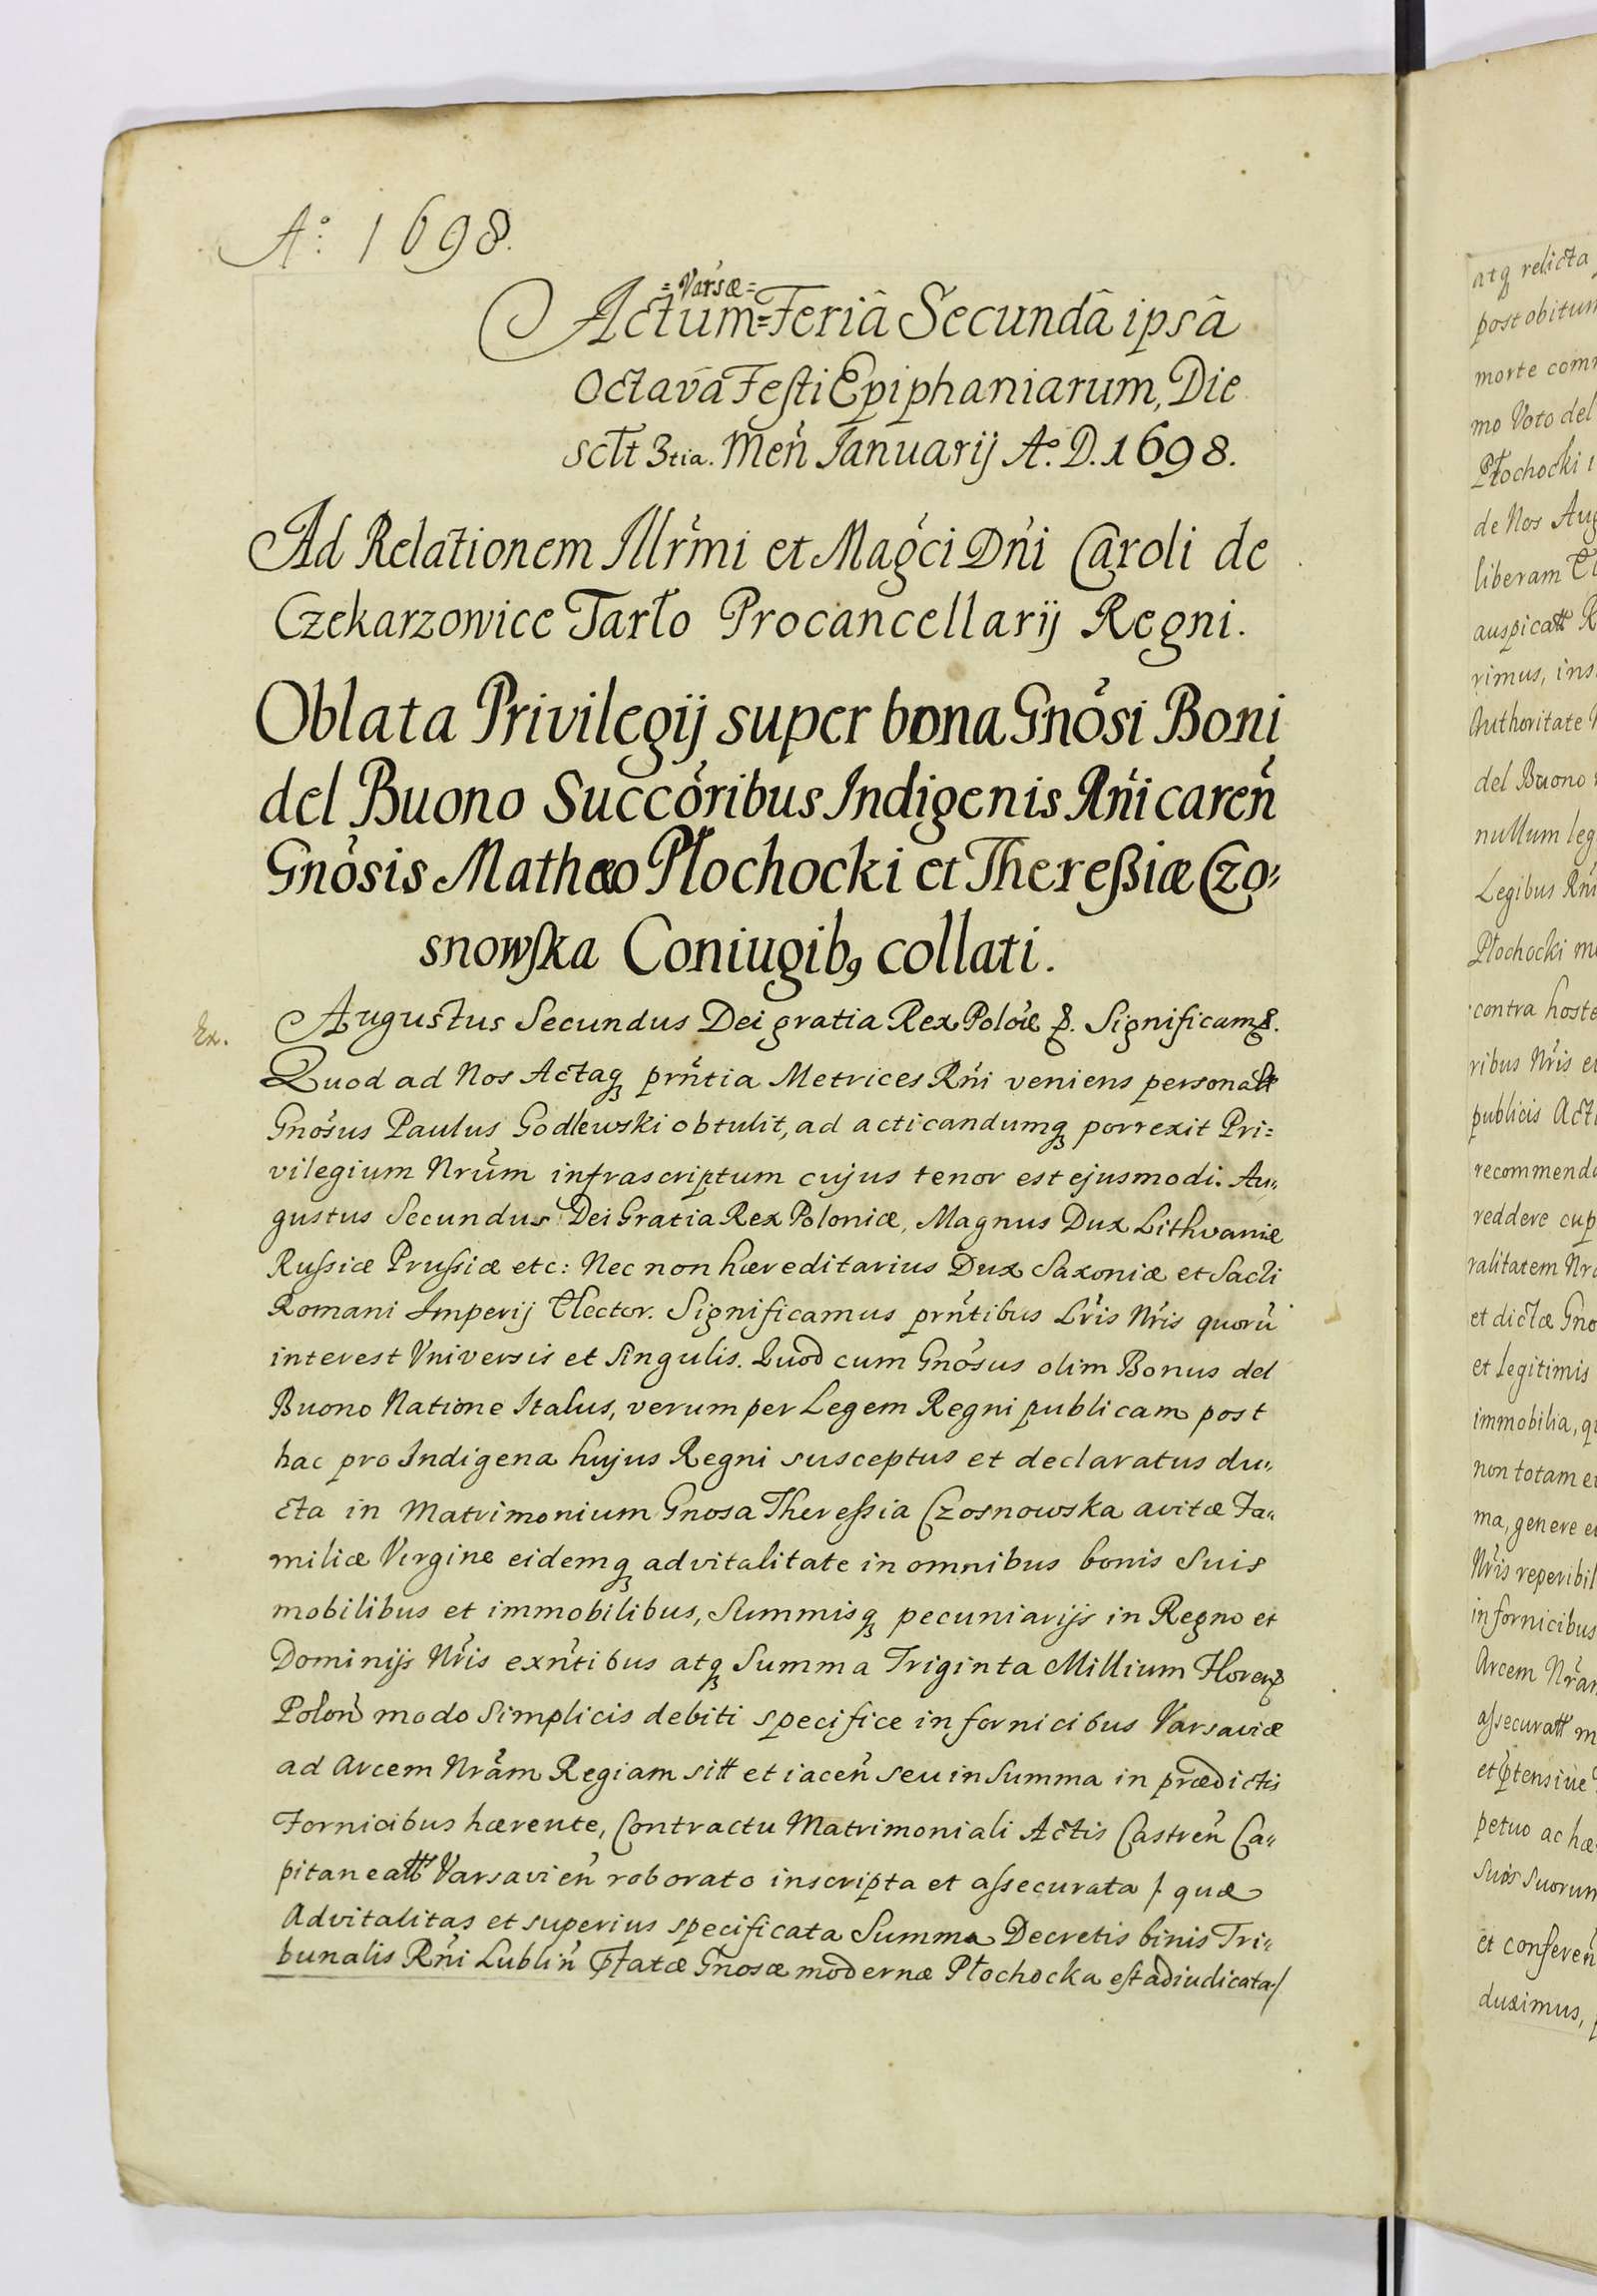 Aº: 1698.
=Varsæ=
Actum=Feriâ Secundâ ipsâ
Octavâ Festi Epiphaniarum, Die
sclt 3tia. Men Ianuarij Aº. D. 1698.
Ad Relationem Illrmi et Magci Dni Caroli de
Czekarzowice Tarło Procancellarij Regni.
Oblata Privilegij super bona Gnosi Boni
del Buono Succoribus Indigenis Rnicaren
Gnosis Mathæo Płochocki et Thereßiæ Czo-
snowska Coniugibꝫ collati.
Ex.
Augustus Secundus Dei gratia Rex Poloiæ &. Significam9 &.
Quod ad Nos Actaqꝫ prntia Metrices Rni veniens personalr
Gnosus Paulus Godlewski obtulit, ad acticandumqꝫ porrexit Pri=
vilegium Nrum infrascriptum cujus tenor est ejusmodi. Au-
gustus Secundus Dei Gratia Rex Poloniæ, Magnus Dux Lithvaniæ
Russiæ Prussiæ etc: Nec non hæreditarius Dux Saxoniæ et Sacri
Romani Imperij Elector. Significamus prntibus Lris Nris quorū
interest Vniversis et Singulis. Quod cum Gnosus olim Bonus del
Buono Natione Italus, verum per Legem Regni publicam post
hac pro Indigena hujus Regni susceptus et declaratus du-
cta in Matrimonium Gnosa Theressia Czosnowska avitæ Fa-
miliæ Virgine eidemqꝫ advitalitate in omnibus bonis Suis
mobilibus et immobilibus, Summisqꝫ pecuniarijs in Regno et
Dominijs Nris exntibus atqꝫ Summa Triginta Millium Floren
Polon modo Simplicis debiti specifice in fornicibus Varsaviæ
ad Arcem Nram Regiam sitt et iacen seu in Summa in prædictis
Fornicibus hærente, Contractu Matrimoniali Actis Castren Ca-
pitaneatt Varsavien roborato inscripta et assecurata /. quæ
Advitalitas et superius specificata Summa Decretis binis Tri-
bunalis Rni Lublin Pfatæ Gnosæ modernæ Płochocka est adiudicata/
atqꝫ relicta
post obitum
morte com
mo Voto del
Płochocki
de Nos Aug
liberam
auspicatt R
rimus, ins
Authoritate
del Buono
nullum leg
Legibus Rni
Płochocki
contra hoste
ribus Nris
publicis Act
recommenda
reddere cup
ralitatem Nra
et dictæ Gno
et legitimis
immobilia,
non totam
ma, genere
Nris reperibil
in fornicibus
Arcem Nram
assecuratt
et ptensive
petuo ac hæ
Suis Suorum
et conferen
duximus,